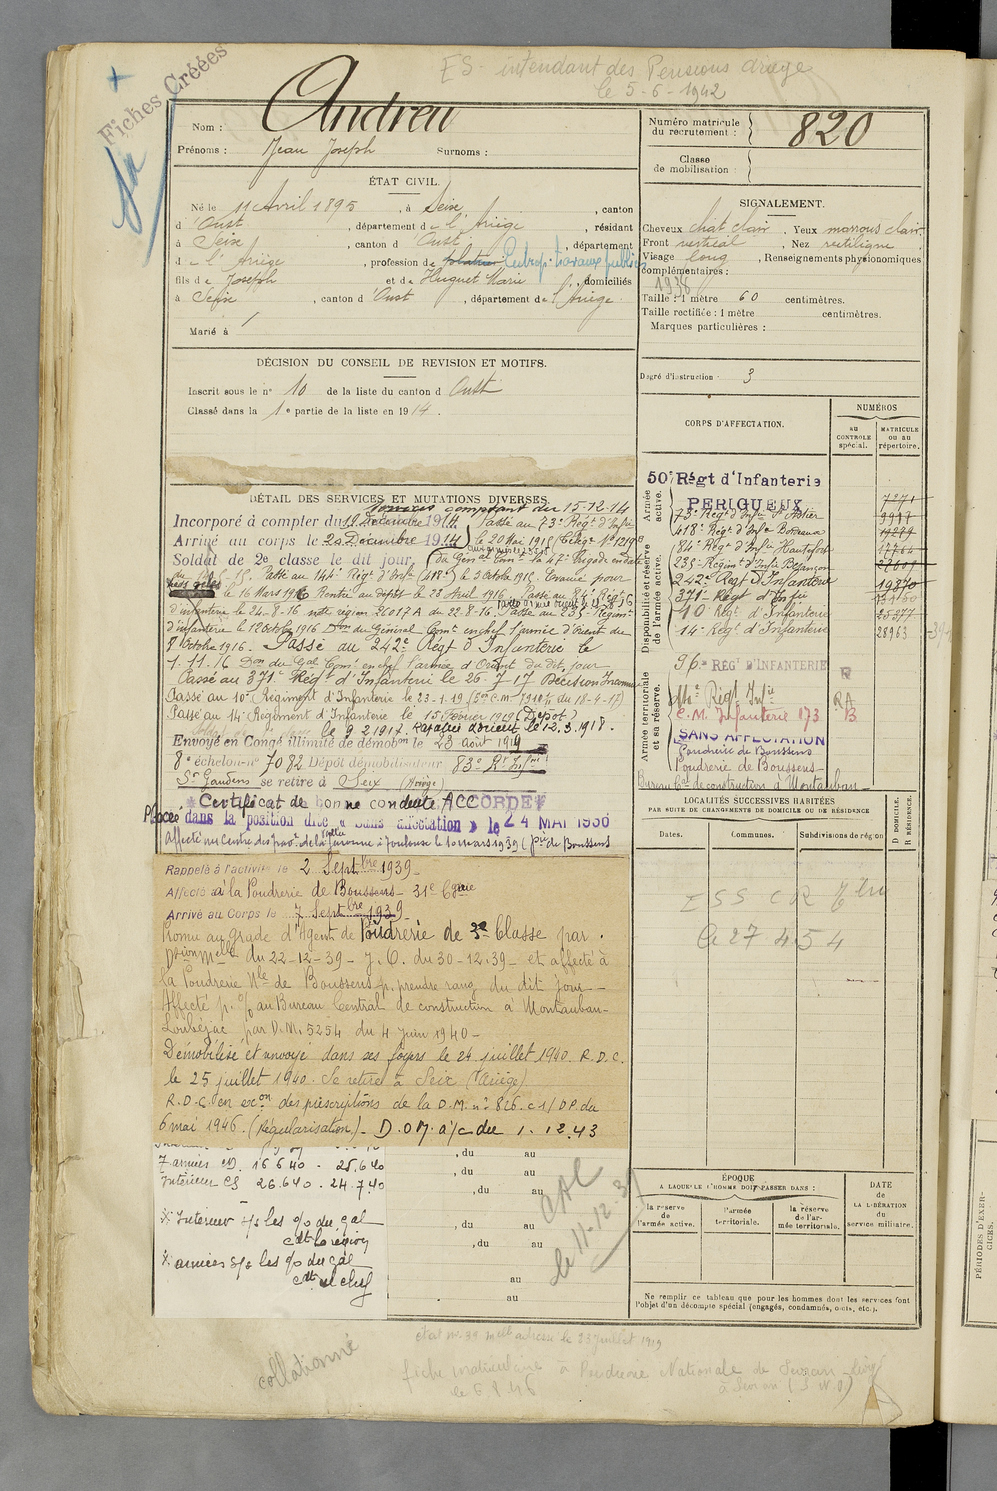 ES - intendant des Pensions Ariège
le 5-6-1942
Fiches Créées
Nom : Andreu
Prénoms : Jean Joseph Surnoms :
Numéro matricule du recrutement : 820
Classe de mobilisation :
ÉTAT CIVIL.
Né le 11 Avril 1895, à Seix, canton
d'Oust, département de l'Ariège, résidant
à Seix, canton d'Oust, département
d e l'Ariège, profession de platrier Entrep. travaux publics
fils de Joseph et de Huguet Marie, domiciliés
à Seix, canton d'Oust, département de l'Ariège.
Marié à
SIGNALEMENT.
Cheveux chat clair. Yeux marrons clair.
Front vertical, Nez rectiligne
Visage long, Renseignements physionomiques
complémentaires :
1936
Taille : 1 mètre 60 centimètres.
Taille rectifiée : 1 mètre centimètres.
Marques particulières :
Degré d'instruction : 3
DÉCISION DU CONSEIL DE REVISION ET MOTIFS.
Inscrit sous le n° 10 de la liste du canton d'Oust
Classé dans la 1e partie de la liste en 1914.
CORPS D'AFFECTATION.
NUMÉROS
AU CONTROLE spécial.
MATRICULE OU AU répertoire.
Armée active.
Disponibilité et réserve de l'armée active.
Armée territoriale et sa réserve.
50e Régt d'Infanterie
PERIGUEUX 7271
73e Régt d'Infie St Astier 9997
418e Régt d'Infie Bordeaux
184e Régt d'Infie Hautefort
235e Régim d'Infie Besançon
242e Régt d'Infanterie 19370
371e Régt d'Infie
10e Régt d'Infanterie
14e Régt d'Infanterie 28963
96e RÉGT D'INFANTERIE R
Régt Infie RA
C.M. Infanterie 173 B
SANS AFFECTATION
Poudrerie de Boussens
Poudrerie de Boussens
Bureau Cal de construction à Montauban
DÉTAIL DES SERVICES ET MUTATIONS DIVERSES.
Services comptant du 15-12-14
Incorporé à compter du 19 Décembre 1914. Passé au 73e Régt d'Infie
Arrivé au corps le 20 Décembre 1914 le 20 Mai 1915
Soldat de 2e classe le dit jour
Passé au 144e Régt d'Infie (418e) le 3 Octobre 1915. Evacué pour
pieds gelés le 16 Mars 1916 Rentré au dépôt le 23 Avril 1916. Passé au 84e Régt
d'infanterie le 24-8-16 note région 26012 A du 22-8-16. Passé au 235e Régim
d'infanterie le 12 Octobre 1916 Don du Général Comt en chef l'armée d'Orient du
9 Octobre 1916. Passé au 242e Régt d'Infanterie le
1.11.16 Don du Gal Comt en chef l'armée d'Orient du dit jour
Passé au 371e Régt d'Infanterie le 26-7-17 Décision Inconnue
Passé au 10e Régiment d'Infanterie le 23-1-19
Passé au 14e Régiment d'Infanterie le 15 Février 1919 (Dépôt)
le 9 2 1917. Rapatrié d'orient le 12.3.1918.
Envoyé en Congé illimité de démobon le 23 août 1919
8e échelon - n° 7082 Dépôt démobilisateur 83e Rt Infie
St Gaudens se retire à Seix (Ariège)
Certificat de bonne conduite ACCORDÉ
Placé dans la position dite « sans affectation » le 24 MAI 1936
Affecté au Centre des trav. de la Hte Garonne à Toulouse le 10 mars 1939 (Prie de Boussens
Rappelé à l'activité le 2 Septbre 1939
Affecté à la Poudrerie de Boussens - 31e Cgnie
Arrivé au Corps le 7 Septbre 1939
Promu au grade d'Agent de Poudrerie de 3e Classe par
Don Melle du 22-12-39 - J.O. du 30-12-39 - et affecté à
la Poudrerie Nle de Boussens p. prendre rang du dit jour -
Affecté p. o/ au Bureau Central de construction à Montauban-
Loubéjac par D.M. 5254 du 4 juin 1940 -
Démobilisé et renvoyé dans ses foyers le 24 juillet 1940. R.D.C.
le 25 juillet 1940. Se retire à Seix (Ariège)
R.D.C. en exon des prescriptions de la D.M. n° 826.c1/DP. du
6 mai 1946. (Régularisation) - D.O.M. à/c du 1.12.43
Z armées CD. 16 6 40 - 25.6.40
Intérieur CS 26.6.40 - 24.7.40
* Intérieur s/s les o/o du gal
cdt la région
* armées s/s les o/o du gal
cdt en chef
, du au
, du au
, du au
, du au
, du au
au
au
CAL
le 11-12-39
LOCALITÉS SUCCESSIVES HABITÉES
PAR SUITE DE CHANGEMENTS DE DOMICILE OU DE RÉSIDENCE
Dates. Communes. Subdivisions de région
D. DOMICILE. R. RÉSIDENCE.
ESS CR
Le 27 4 54
ÉPOQUE
A LAQUELLE L'HOMME DOIT PASSER DANS :
la réserve de l'armée active.
l'armée territoriale.
la réserve de l'armée territoriale.
DATE de LA LIBÉRATION du service militaire.
Ne remplir ce tableau que pour les hommes dont les services font
l'objet d'un décompte spécial (engagés, condamnés, omis, etc.).
collationné
le 23 juillet 1919
fiche matriculaire à Poudrerie Nationale de Sevran-Livry
le 6 8 46 à Sevran (S & O)
PÉRIODES D'EXERCICES.